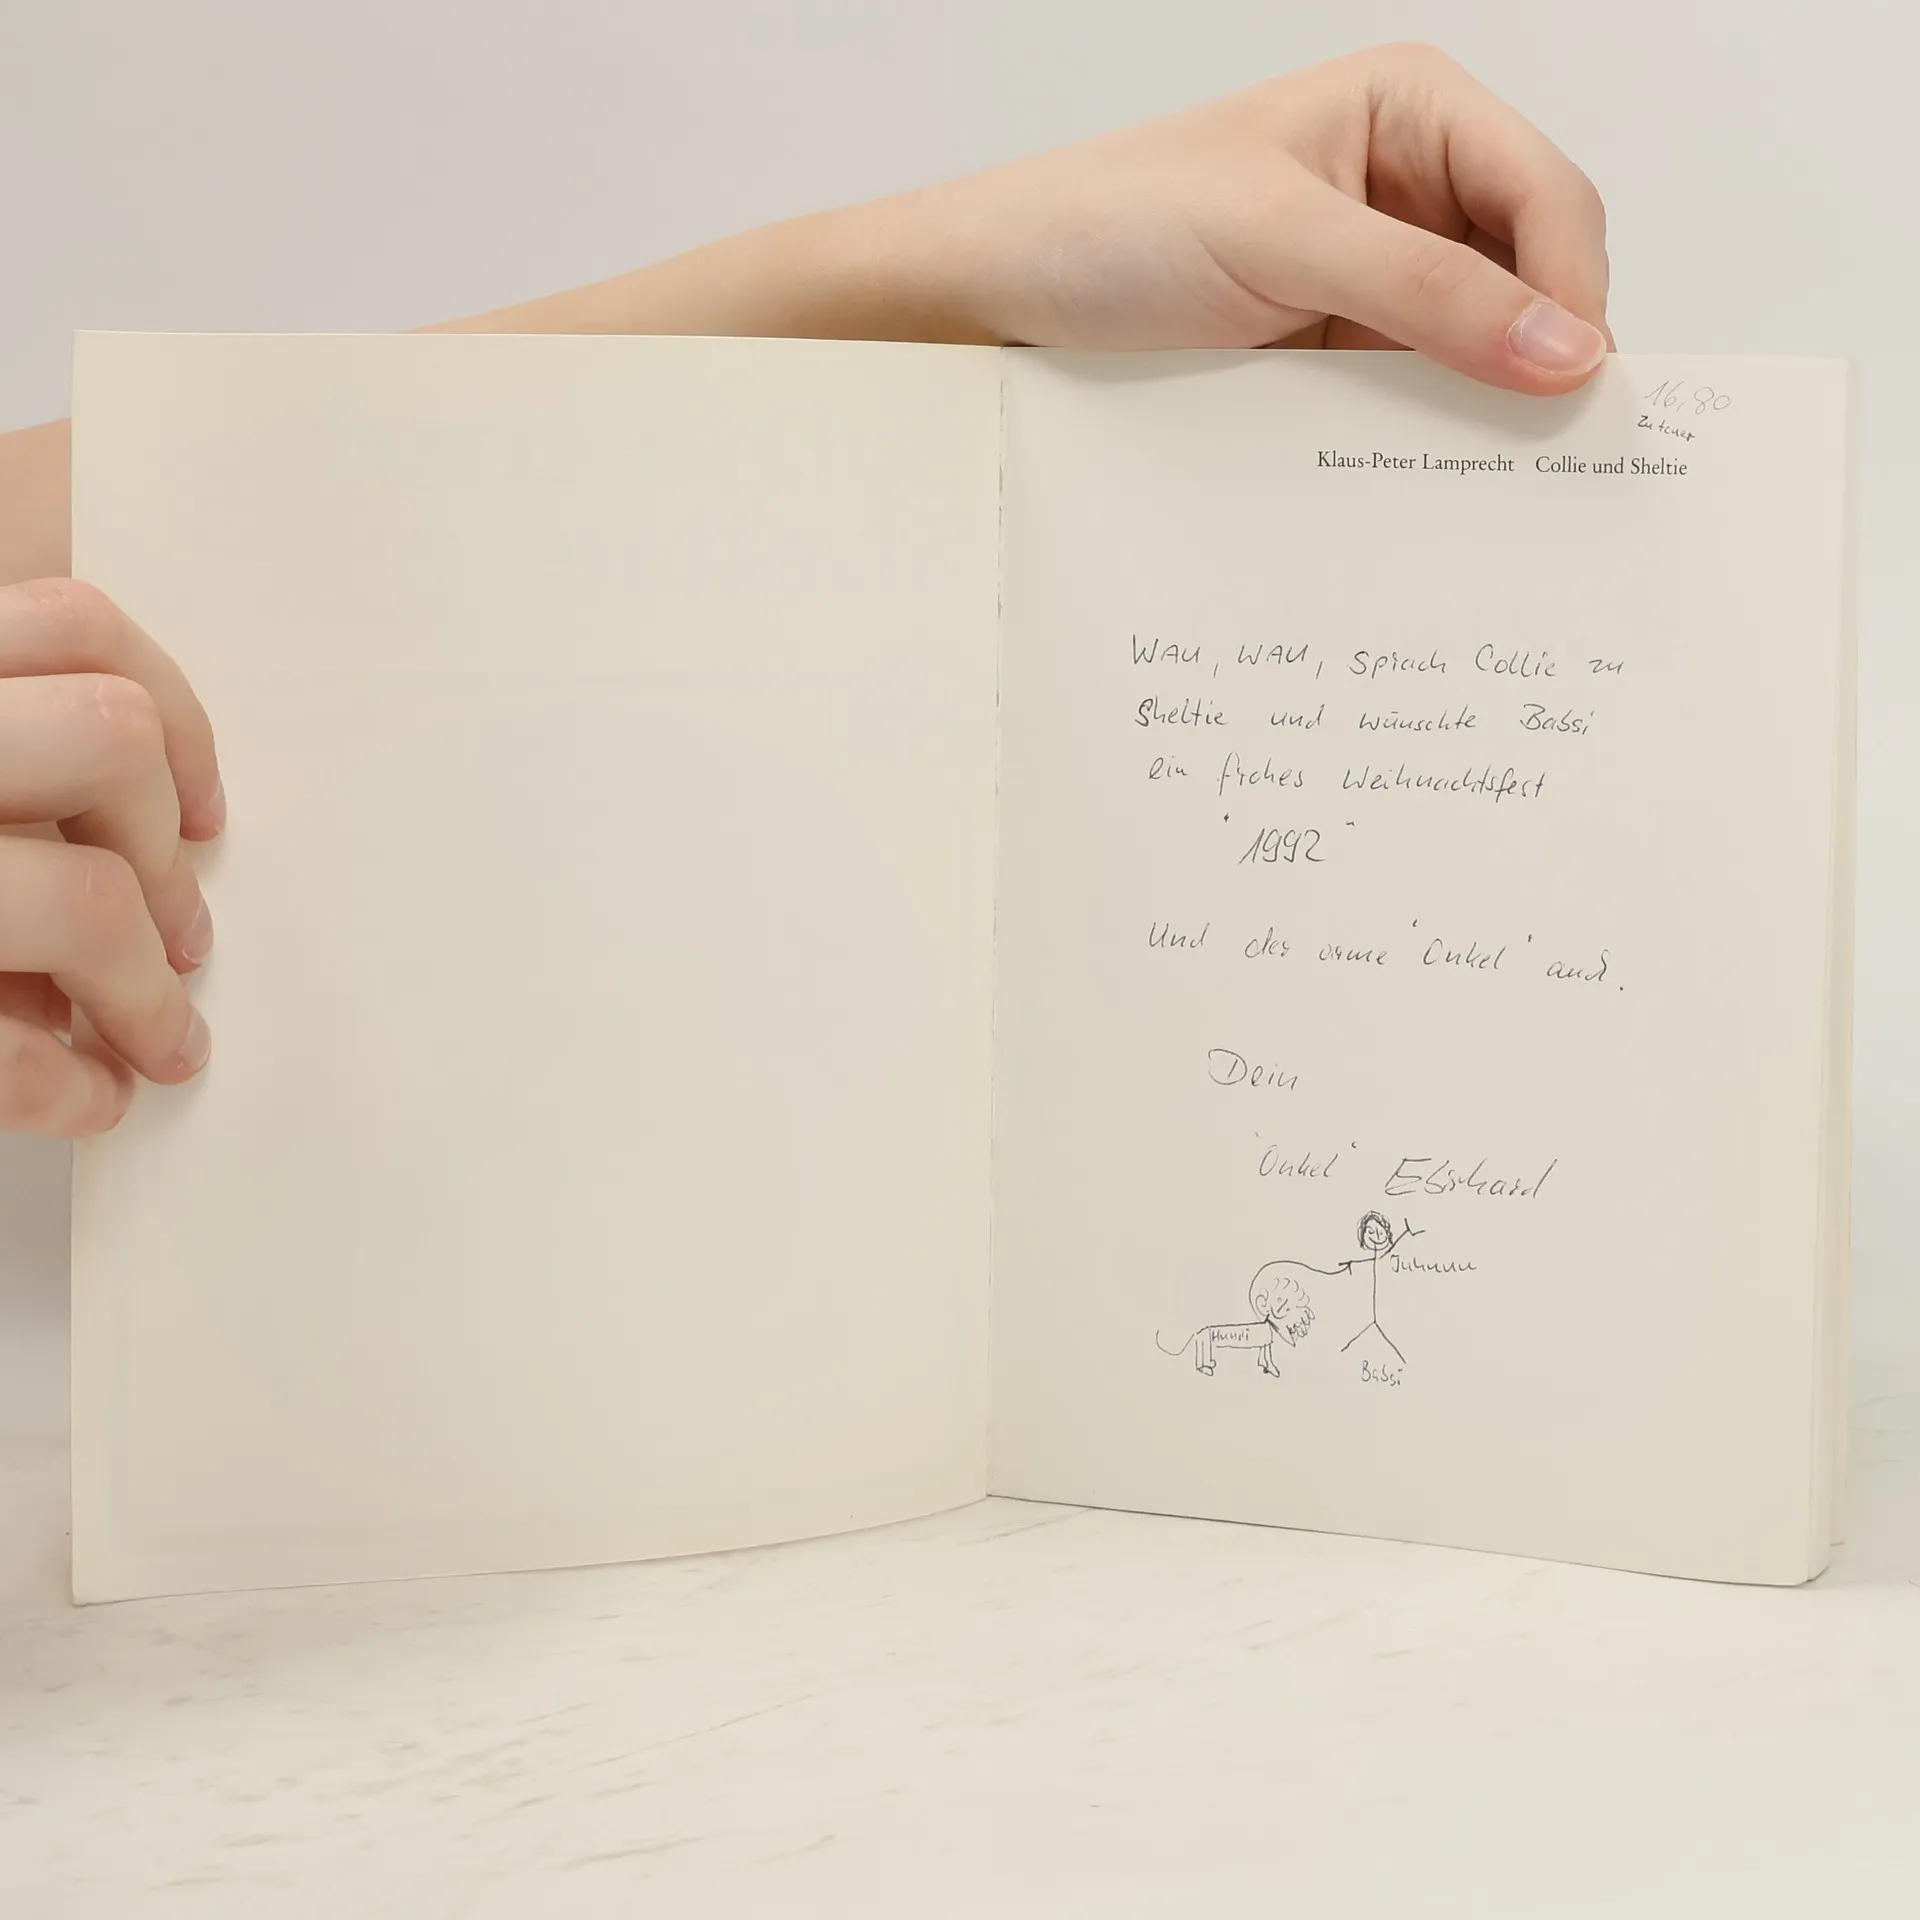 16,80
Zu teuer
Klaus-Peter Lamprecht Collie und Sheltie
WAU, WAU, sprach Collie zu
Sheltie und wünschte Babsi
ein frohes Weihnachtsfest
"1992"
Und der arme "Onkel" auch.
Dein
"Onkel" Eberhard
Juhuuu
Hundi
Babsi